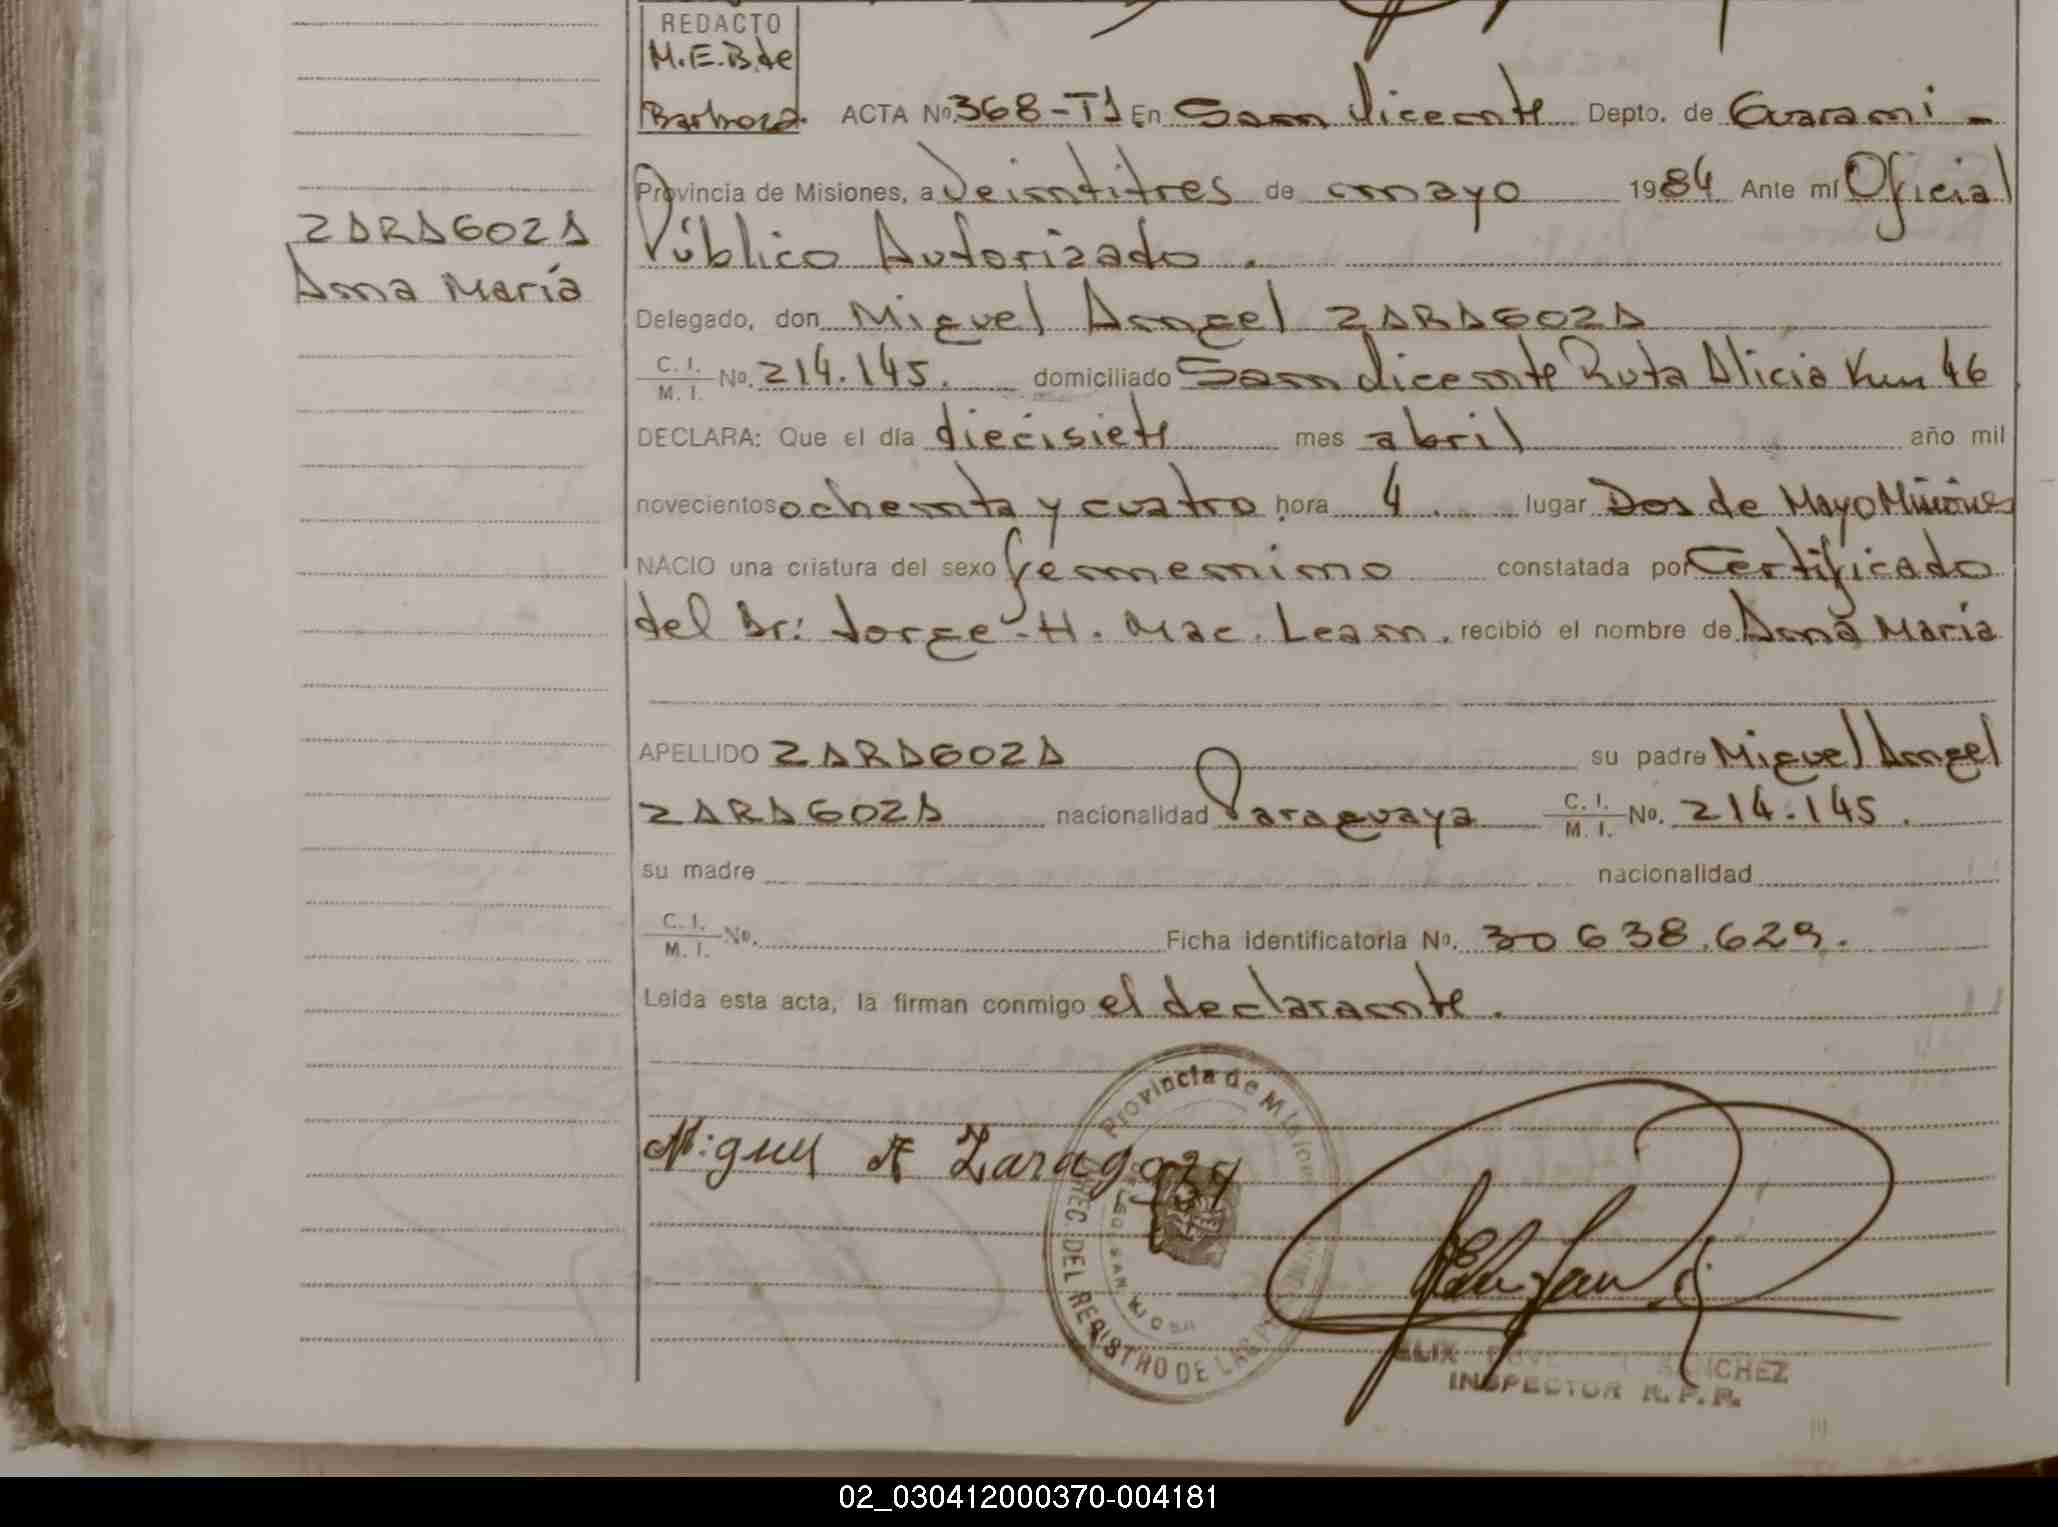 REDACTO
M.E.B.de
Barboza. ACTA Nº 368-T1 En San Vicente Depto. de Guarani -
Provincia de Misiones, a Veintitres de mayo 1984 Ante mí Oficial
Público Autorizado.
ZARAGOZA
Ana María
Delegado, don Miguel Angel ZARAGOZA
C. I. / M. I. No. 214.145. domiciliado San Vicente Ruta Alicia Km 46
DECLARA: Que el día diecisiete mes abril año mil
novecientos ochenta y cuatro hora 4. lugar Dos de Mayo Misiones
NACIO una criatura del sexo femenino constatada por Certificado
del Dr: Jorge H. Mac. Lean. recibió el nombre de Ana María
APELLIDO ZARAGOZA su padre Miguel Angel
ZARAGOZA nacionalidad Paraguaya C. I. / M. I. No. 214.145.
su madre nacionalidad
C. I. / M. I. No. Ficha identificatoria No. 30 638.629.
Leída esta acta, la firman conmigo el declarante.
Miguel A Zaragoza
Provincia de Misiones
DEL REGISTRO DE LAS
SANCHEZ
INSPECTOR R.P.P.
02_030412000370-004181